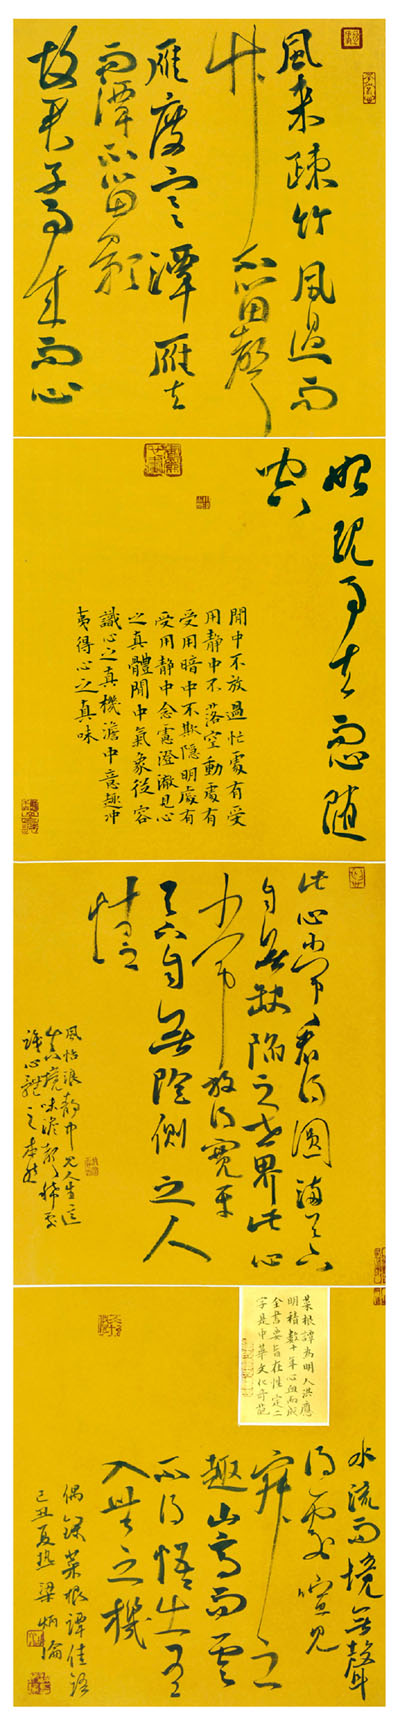 風来踈竹風過而
竹不留聲
雁度寒潭雁去
而潭不留影
故君子事来而心
始現事去而心随
空
閒中不放過忙處有受
用静中不落空動處有
受用暗中不欺隱明處有
受用静中念慮澄澈見心
之真體閒中氣象從容
識心之真機澹中意趣冲
夷得心之真味
此心常看得圓滿天下
自無缺陷之世界此心
常放得寬平
天下自無險側之人
情
風恬浪静中見人生之
真境味淡聲稀處
識心體之本然
菜根譚為明人洪應
明積數十年心血而成
全書要旨在性定二
字是中華文化奇葩
水流而境無聲
得處喧見
寂之
趣山高而雲
不碍悟出有
入無之機
偶録菜根譚佳語
己丑夏热梁炳倫